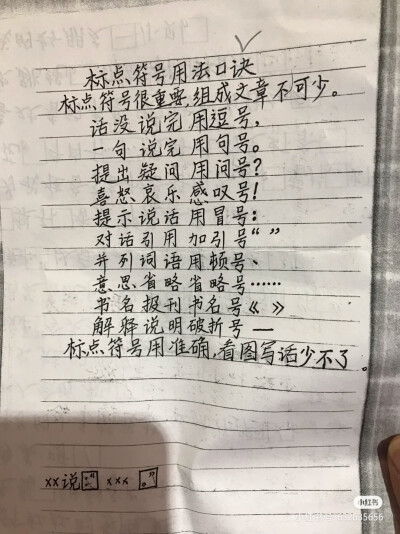 标点符号用法口诀
标点符号很重要,组成文章不可少。
话没说完用逗号,
一句说完用句号。
提出疑问用问号?
喜怒哀乐感叹号!
提示说话用冒号:
对话引用加引号“ ”
并列词语用顿号、
意思省略省略号……
书名报刊书名号《 》
解释说明破折号—
标点符号用准确,看图写话少不了。
xx说:“xxx。”
小红书